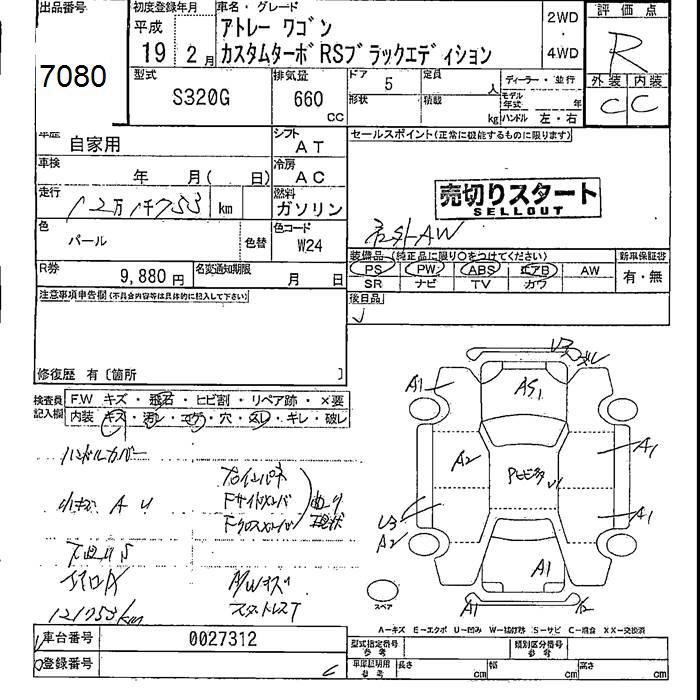 出品番号
7080
初度登録年月
平成
19 2月
車名・グレード
アトレー ワゴン
カスタムターボRSブラックエディション
2WD
・
4WD
評価点
R
外装 内装
C C
型式
S320G
排気量
660
CC
ドア 5
形状
定員 人
積載 kg
ディーラー・並行
モデル年式 年
ハンドル 左・右
車歴
自家用
シフト
AT
車検
年 月( 日)
冷房
AC
走行
12万1千753 km
燃料
ガソリン
色
パール
色替
色コード
W24
R券
9,880円
名変通知期限
月 日
セールスポイント(正常に機能するものに限ります)
売切りスタート
SELLOUT
社外AW
装備品(純正品に限り○をつけてください)
PS PW ABS エアB AW
SR ナビ TV カワ
新車保証書
有・無
後日品
注意事項申告欄(不具合内容等は具体的に記入して下さい)
修復歴 有〔箇所 〕
検査員
記入欄
F.W キズ・飛石・ヒビ割・リペア跡・×要
内装 キズ・汚レ・コゲ・穴・スレ・キレ・破レ
ハンドルカバー
小キズ A U
Fサイドメンバ
Fクロスメンバ
121753km
スタットレスT
A1
AS1
A1
A2
U1
A1
U3
A2
A1
A1
A1
スペア
A―キズ E―エクボ U―凹み W―補修跡 S―サビ C―腐食 XX―交換済
車台番号
0027312
登録番号
型式指定番号
参考
類別区分番号
参考
車庫証明用
参考
長さ cm
幅 cm
高さ cm